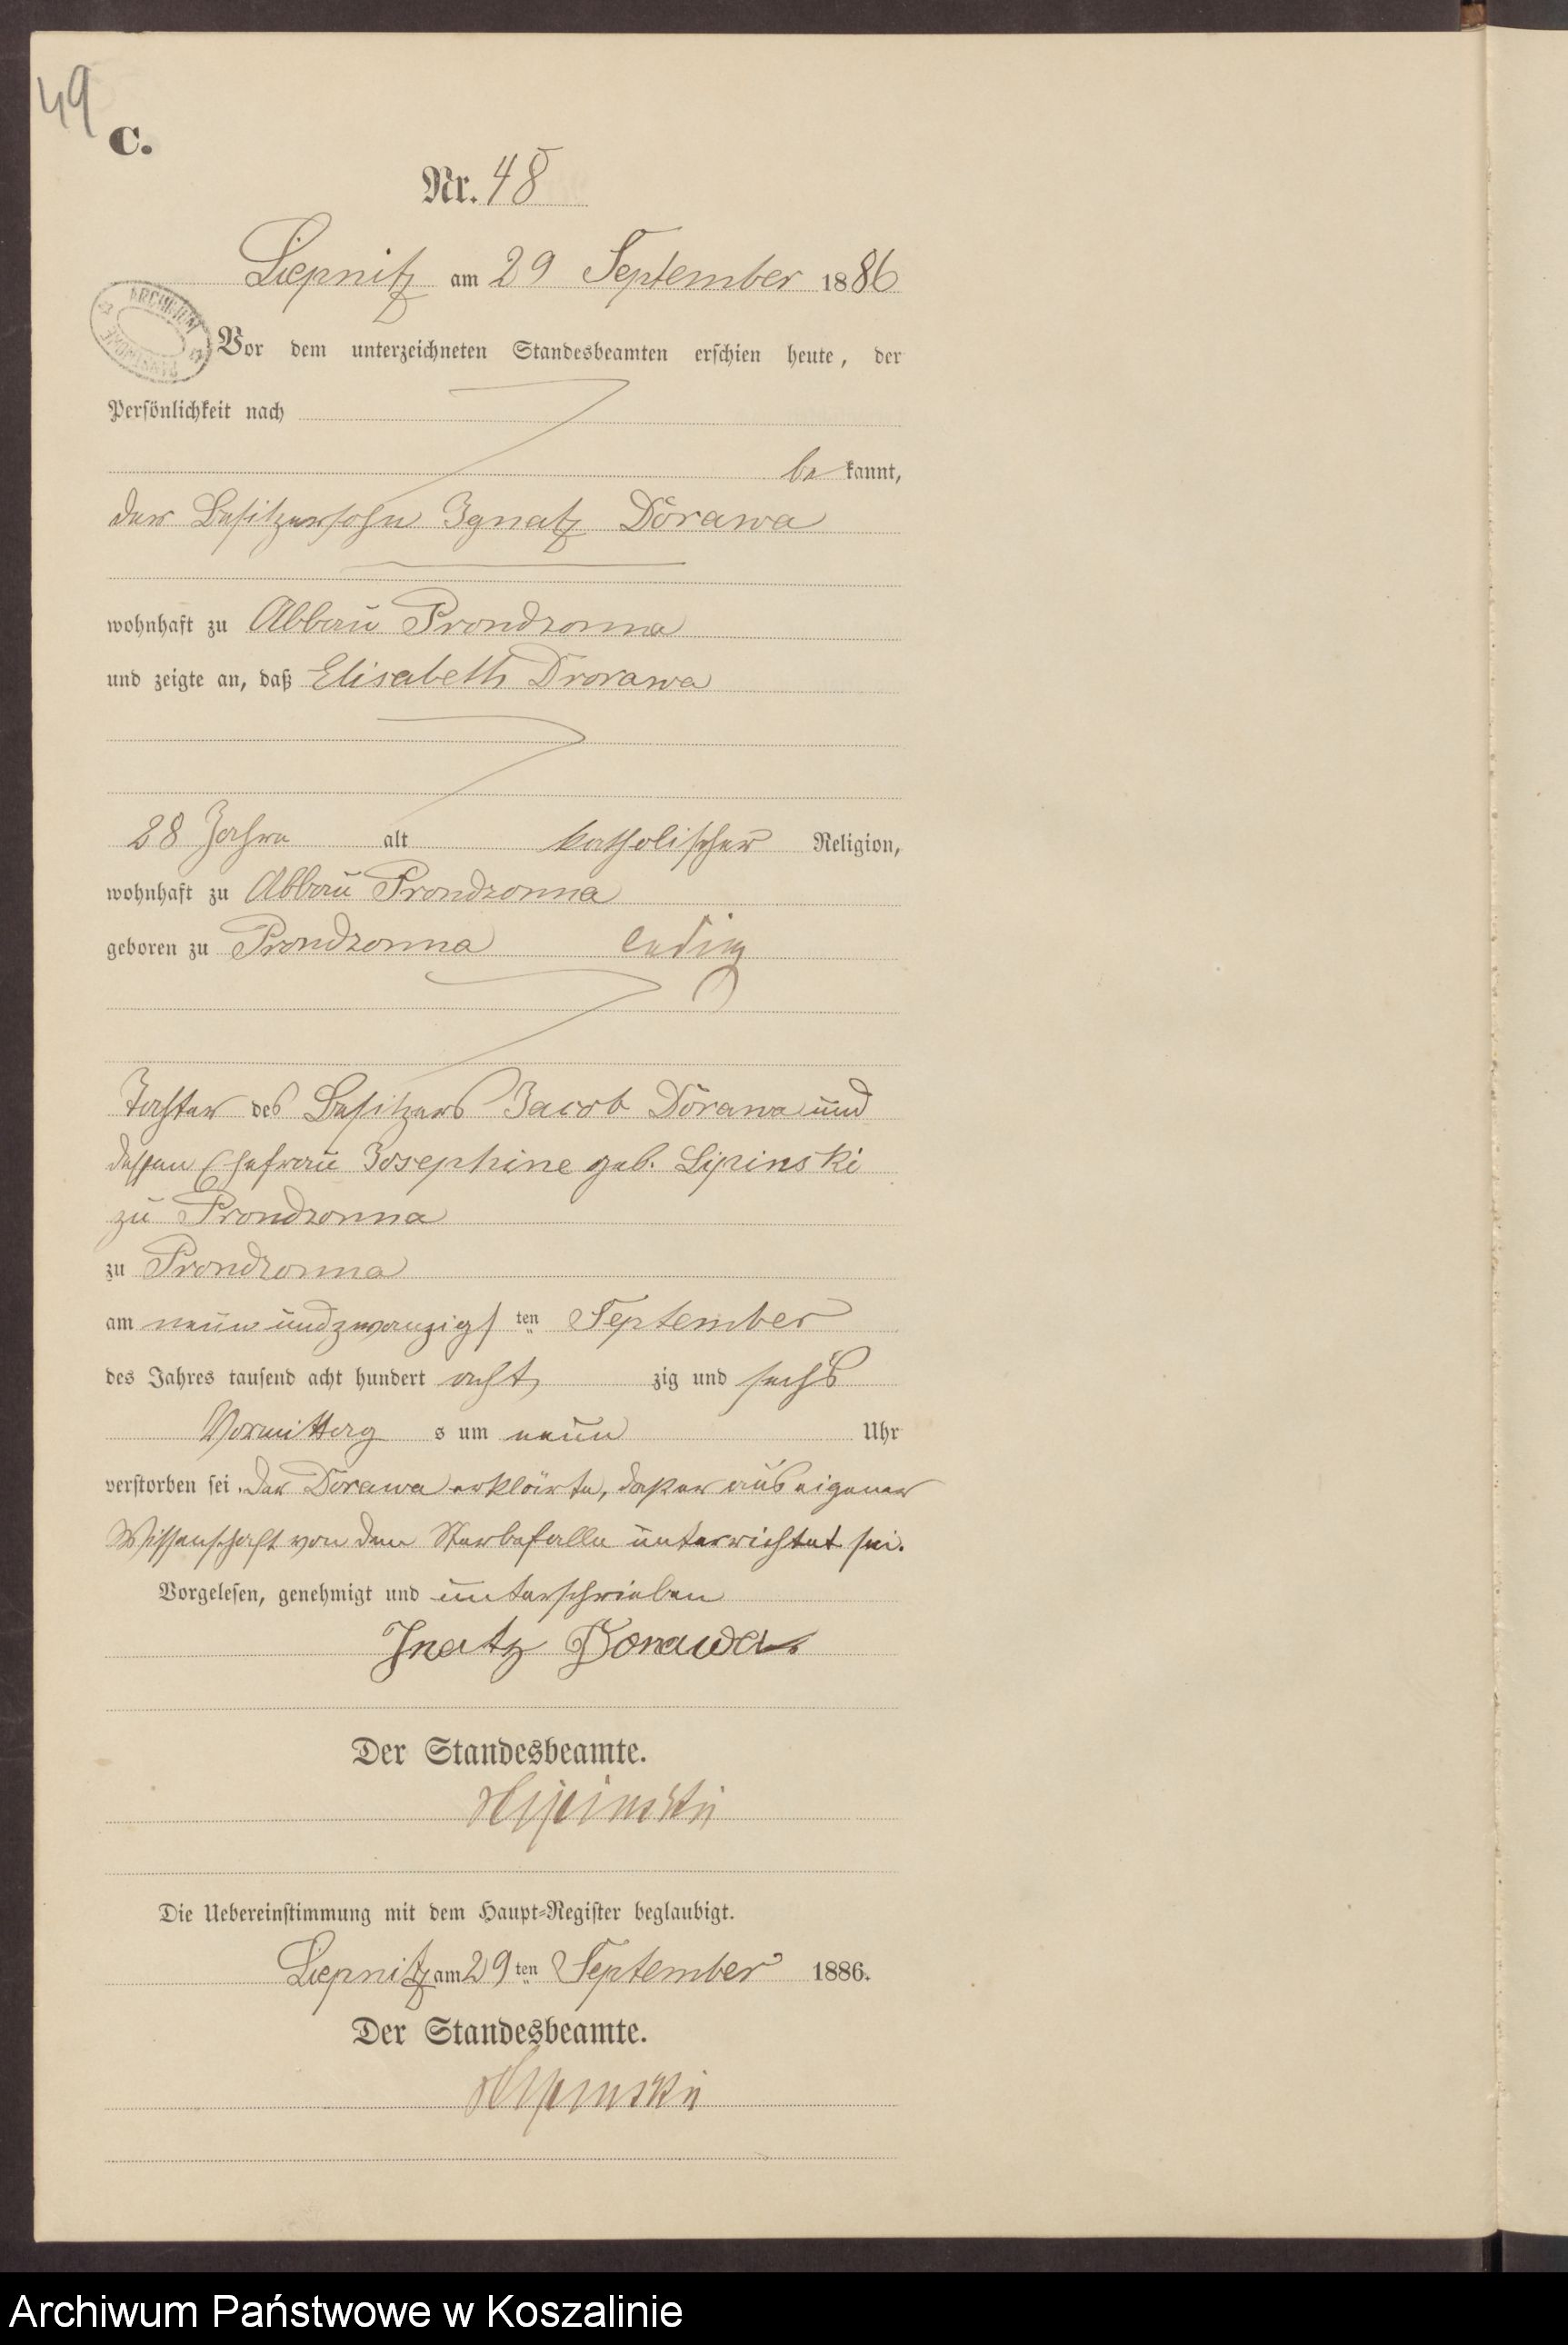 49
C.
Nr. 48
Liepnitz am 29 September 1886
ARCHIWUM
Vor dem unterzeichneten Standesbeamten erschien heute, der
Persönlichkeit nach
be kannt,
der Besitzersohn Ignatz Dorawa
wohnhaft zu Abbau Prondzonna
und zeigte an, daß Elisabeth Drorawa
28 Jahre alt katholischer Religion,
wohnhaft zu Abbau Prondzonna
geboren zu Prondzonna ledig
Tochter des Besitzers Jacob Dorawa und
dessen Ehefrau Josephine geb. Lipinski
zu Prondzonna
zu Prondzonna
am neun und zwanzigs ten September
des Jahres tausend acht hundert acht zig und sechs
Vormittag s um neun Uhr
verstorben sei. Der Dorawa erklärte, daß er aus eigener
Wissenschaft von dem Sterbefalle unterrichtet sei.
Vorgelesen, genehmigt und unterschrieben
Inatz Dorawa
Der Standesbeamte.
Die Uebereinstimmung mit dem Haupt-Register beglaubigt.
Liepnitz am 29 ten September 1886.
Der Standesbeamte.
Archiwum Państwowe w Koszalinie